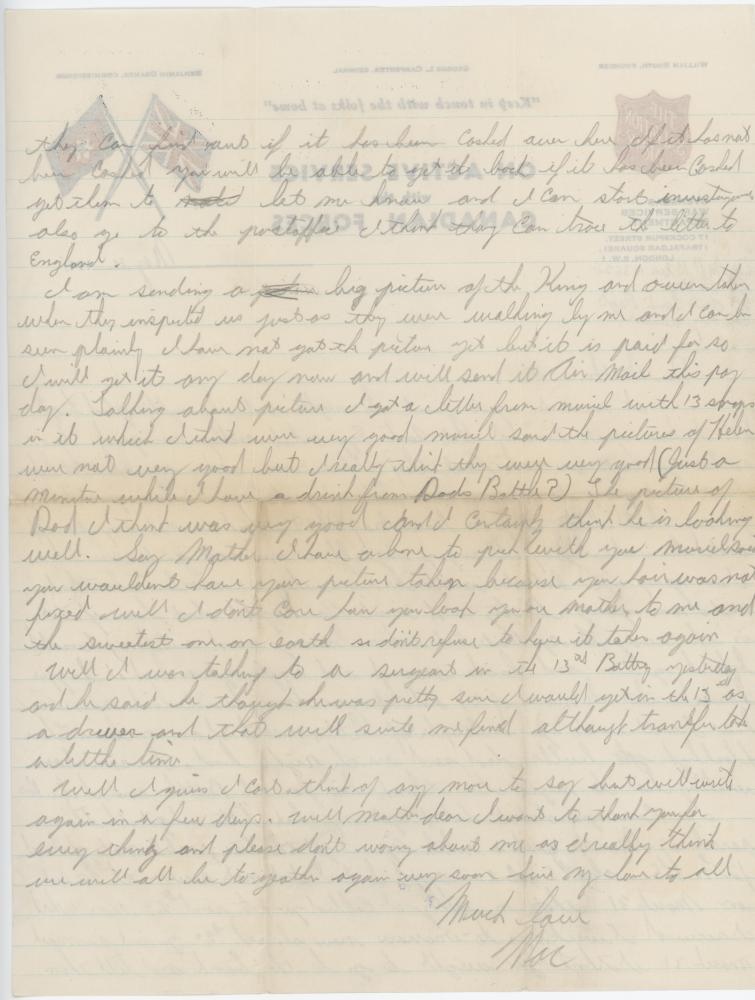 they can find out if it has been cashed over here If it has not
been cashed you will be able to get it back if it has been cashed
get them to let me know and I can start
also go to the postoffice I think they can trace the letter to
England.
I am sending a big picture of the King and queen taken
when they inspected us just as they were walking by me and I can be
seen plainly I have not got the picture yet but it is paid for so
I will get it any day now and will send it Air Mail this pay
day. Talking about picture I got a letter from muriel with 13 snaps
in it which I think were very good muriel said the pictures of Helen
were not very good but I really think they were very good (Just a
minute while I have a drink from Dads Bottle?) The picture of
Dad I think was very good and I certainly think he is looking
well. Say Mother I have a bone to pick with you muriel said
you wouldent have your picture taken because your hair was not
fixed well I dont care how you look you are mother to me and
the sweetest one on earth so dont refuse to have it taken again
Well I was talking to a sergeant in the 13th Battry yesterday
and he said he though he was pretty sure I would get in the 13th as
a driver and that will suite me fine although transfer take
a little time.
Well I guess I cant think of any more to say but will write
again in a few days. Well mother dear I want to thank you for
every thing and please dont worry about me as I really think
we will all be to geather again very soon Give my love to all
Much love
Mac
WILLIAM BOOTH, FOUNDER
GEORGE L. CARPENTER, GENERAL
BENJAMIN ORAMES, COMMISSIONER
"Keep in touch with the folks at home"
ON ACTIVE SERVICE
CANADIAN FORCES